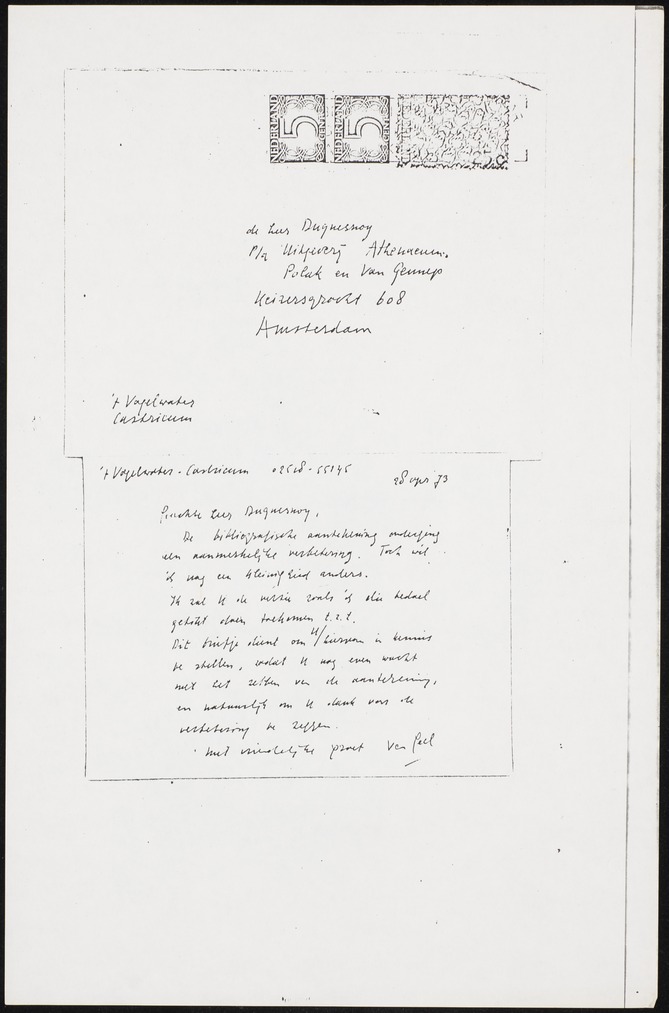 NEDERLAND 5 CENT NEDERLAND 5 CENT
de heer Duquesnoy
P/a Uitgeverij Athenaeum.
Polak en Van Gennep
Keizersgracht 608
Amsterdam
't Vogelwater
Castricum
't Vogelwater - Castricum 02518-55145 28 apr 73
Geachte heer Duquesnoy,
De bibliografische aantekening onderging
een aanmerkelijke verbetering. Toch wil
ik nog een kleinigheid anders.
Ik zal U de versie zoals ik die bedoel
getikt doen toekomen t.z.t.
Dit briefje dient om U hiervan in kennis
te stellen, zodat U nog even wacht
met het zetten van de aantekening,
en natuurlijk om U dank voor de
verbetering te zeggen.
met vriendelijke groet Van Geel